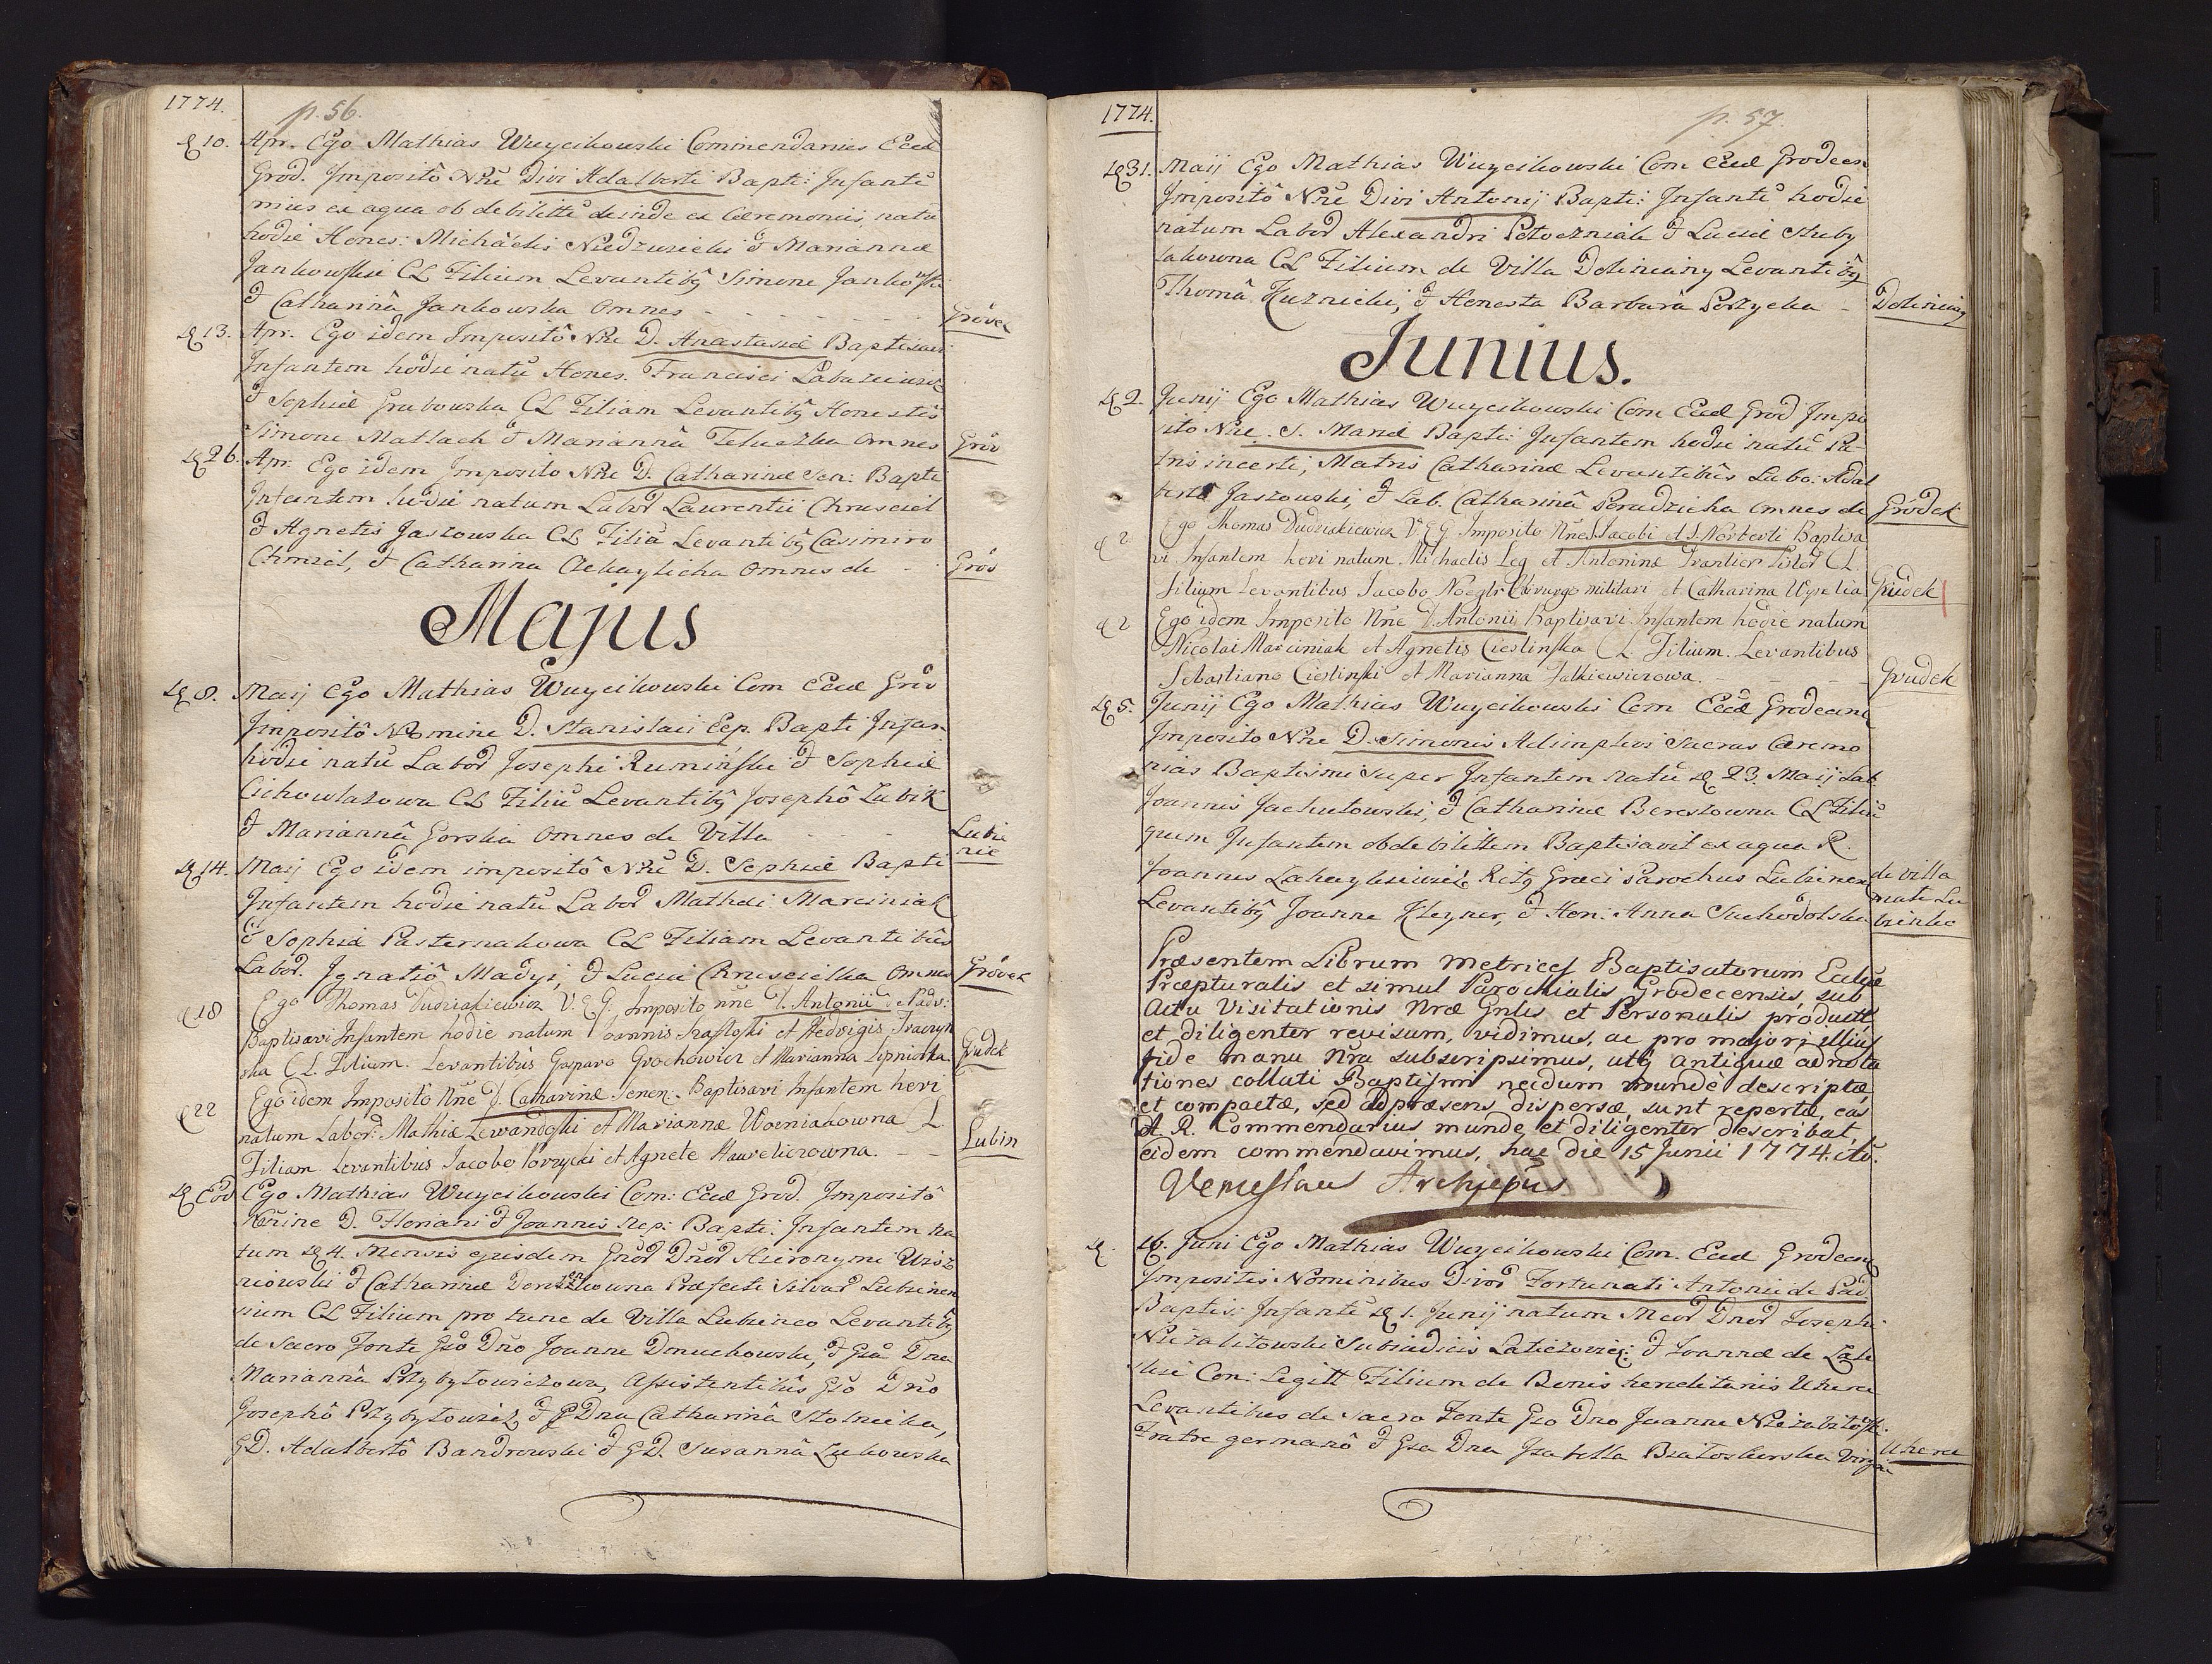 1774.
p. 56.
10. Apr. Ego Mathias Wuycikowski Commendarius Eccl
Grod. Impositô Nñe Divi Adalberti Bapti: Infantē
ex aqua ob debilittē deinde ex Cæremoniis, natū
hodie Hones: Michäelis Niedzwiecki & Mariannæ
Jankowskie CL Filium Levantibg Simone Jankowski
& Catharinâ Jankowska Omnes Gröder
13. Apr. Ego idem Impositô Nñe D. Anastasiæ Baptisavi
Infantem hodie natū Hones. Francisci
& Sophiæ Grabowska CL Filiam Levantibg Honestis
Simone Matlach & Mariannâ Omnes Gröd
26. Apr. Ego idem Imposito Nñe D. Catharinæ Sen: Bapti
Infantem hodie natum Labor Laurentii Chrusciel
& Agnetis Jaszowska CL Filiā Levantibg Casimiro
Chmiel, & Catharina Omnes de Gröd
Majus
8. Maij Ego Mathias Wuycikowski Com Eccl Gröd
Impositô Nomine D. Stanislaii Eep. Bapti Infan
hodie natū Labor Josephi Rumiński & Sophiæ
CL Filiū Levantibg Josephô Zubik
& Mariannâ Gorska Omnes de Villa Lubie
nie
14. Maij Ego idem impositô Nñe D. Sophiæ Bapti
Infantem hodie natū Labor Mathei Marciniak
& Sophiæ Pasternakowa CL Filiam Levantibūs
Labor. Ignatiô Madyi, & Lucia Chruscielka Omnes Gröder
18 Ego Thomas Dudziakiewicz V. E G. Imposito nñe D. Antonii de Padv:
Baptisavi Infantem hodie natum Joannis et Hedvigis
ska C L. Filium. Levantibus Gasparo Grochowicz et Marianna Lipnicka. Grudek
22 Ego idem Imposito Nñe D. Catharinæ Senen: Baptisavi Infantem heri
natum Labor: Mathiæ Lewandoski et Mariannæ Woeniakowna L.
Filiam. Levantibus Jacobo et Agnete Hawreliczowna. Lubin
Eod Ego Mathias Wuycikowski Com: Eccl Grod. Impositô
D. Floriani & Joannis Nep: Bapti: Infantem na
tum 4. Mensis ejusdem Gnör Dnör Hieronymi
niowski & Catharinæ Præfecti Silvar Lubinen
sium CL Filium pro tunc de Villa Lubienco Levantibg
de Sacro Fonte Gso Dno Joanne Dmuchowski, & Gsa Dna
Mariannâ Przybytowiczowa, Assistentibūs Gso Dño
Josephô Przybytowicz, & G Dna Catharinâ Stolnicka,
GD. Adalbertô Bandrowski & GD. Susannâ Zukowska
1774.
p. 57.
31. Maij Ego Mathias Wuycikowski Com Eccl Grodecen
Impositô Nñe Divi Antonij Bapti: Infantē hodie
natum Labor Alexandri Potoczniak & Luciæ
CL Filium de Villa Doliniany Levantibg
Thomâ Kuznicki, & Honesta Barbarâ Perzycka Doliniany
Junius.
2. Junij Ego Mathias Wuycikowski Com Eccl Grod Impo
sito Nñe S. Mariæ Bapti: Infantem hodie natū Pa-
tris incerti, Matris Catharinæ Levantibūs Labo: Adal
bertô Jaszowski, & Lab. Catharinâ Omnes de Grödek
2 Ego Thomas Dudziakiewicz V. E G. Imposito Nñe S. Jacobi et S. Norberti Baptisa
vi Infantem heri natum Michaelis Leg et Antoninæ C L.
Filium Levantibus Jacobo Chirurgo militari et Catharina Grudek
2 Ego idem Imposito Nñe D. Antonii Baptisavi Infantem hodie natum
Nicolai Marciniak et Agnetis Cieslinska C L. Filium. Levantibus
Sebastiano Cieslinski et Marianna Falkiewiczowa. Grudek
5. Junij Ego Mathias Wuycikowski Com Eccl Grodecen
Imposito Nñe D. Simonis Adimplevi Sacras Cæremo
nias Baptismi super Infantem natū 23. Maij Lab.
Joannis Jachutowski, & Catharinæ Berestowna CL Filiū
quem Infantem ob debilittem Baptisavit ex aqua R.
Joannes Ritg Græci Parochus Lubinen de villa
Levantibg Joanne Kleyner, & Hon: Anna Suchodolska
Præsentem Librum Metrices Baptisatorum Eccliæ
Præpturalis et simul Parochialis Grodecensis, sub
Actu Visitationis Nræ Gnlis et Personalis productū
et diligenter revisum, vidimus, ac pro majori illius
fide manu Nra subscripsimus, utq antiquæ adnota
tiones collati Baptismi necdum mundè descriptæ,
et compactæ, sed ad præsens dispersæ, sunt repertæ, eas
A R. Commendarius munde et diligenter describat,
eidem commendavimus, hac die 15 Junii 1774. itō.
Wenceslaus Archiepūs
16. Juni Ego Mathias Wuycikowski Com. Eccl Grodecen
Impositis Nominibus Divor Fortunati Antonii de Pad
Baptis: Infantē 1. Junij natum Mcor Dnor Josephi
Niezabitowski Subjudicis & Joannæ de
Con: Legitt Filium de Bonis hereditariis Uherce
Levantibus de Sacro Fonte Gso Dno Joanne Niezabitowsk.
Fratre germanô & Gsa Dna Isabella Białoskorska Virgine Uherce